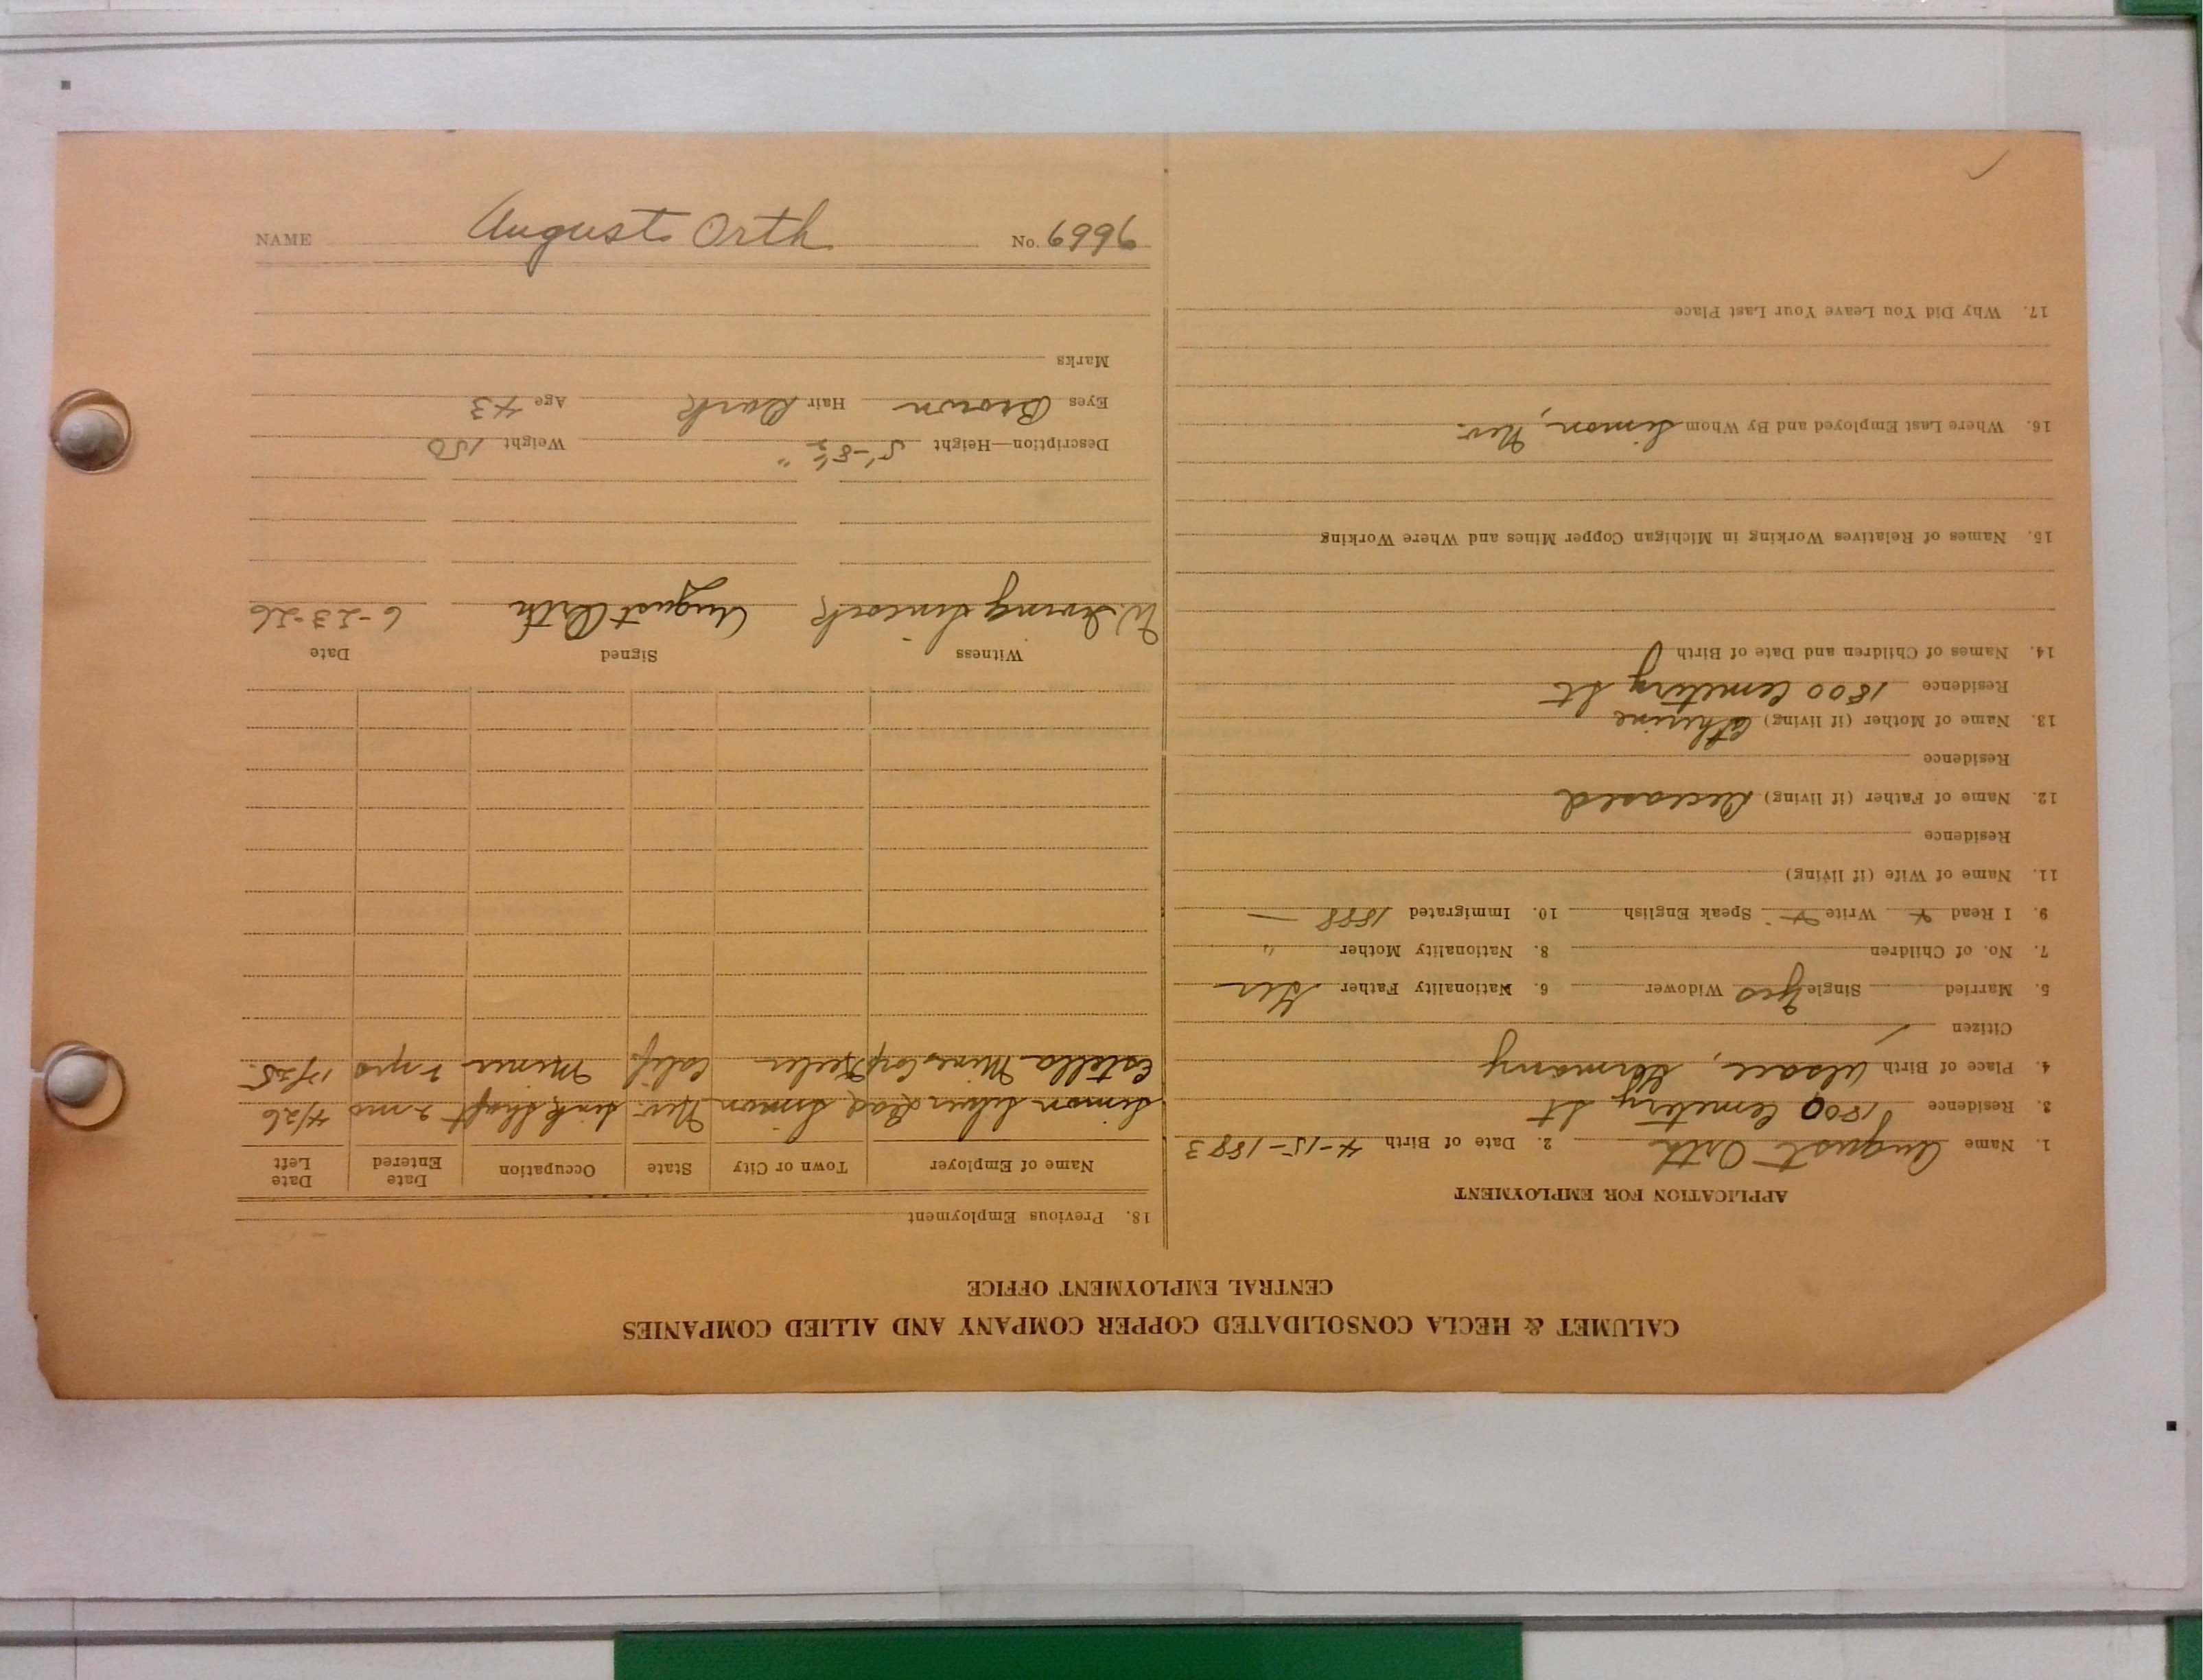 CALUMET & HECLA CONSOLIDATED COPPER COMPANY AND ALLIED COMPANIES
CENTRAL EMPLOYMENT OFFICE
APPLICATION FOR EMPLOYMENT
1. Name August Orth 2. Date of Birth 4-15-1883
3. Residence 1800 Cemetery St
4. Place of Birth Alsace, Germany
Citizen
5. Married Single Yes Widower 6. Nationality Father Ger
7. No. of Children 8. Nationality Mother "
9. I Read Write Speak English 10. Immigrated 1888
11. Name of Wife (if living)
Residence
12. Name of Father (if living) Deceased
Residence
13. Name of Mother (if living) Catherine
Residence 1800 Cemetery St
14. Names of Children and Date of Birth
15. Names of Relatives Working in Michigan Copper Mines and Where Working
16. Where Last Employed and By Whom Simon, Nev.
17. Why Did You Leave Your Last Place
18. Previous Employment
Name of Employer Town or City State Occupation Date Entered Date Left
Simon Silver Lead Simon Nev. Sink Shaft 2 mo 4/26
Estella Mines Corp Keeler Calif Miner 2 yrs 12/25
Witness Signed Date
W. Irving August Orth 6-23-26
Description—Height 5'-8½" Weight 150
Eyes Brown Hair Dark Age 43
Marks
NAME August Orth No. 6996